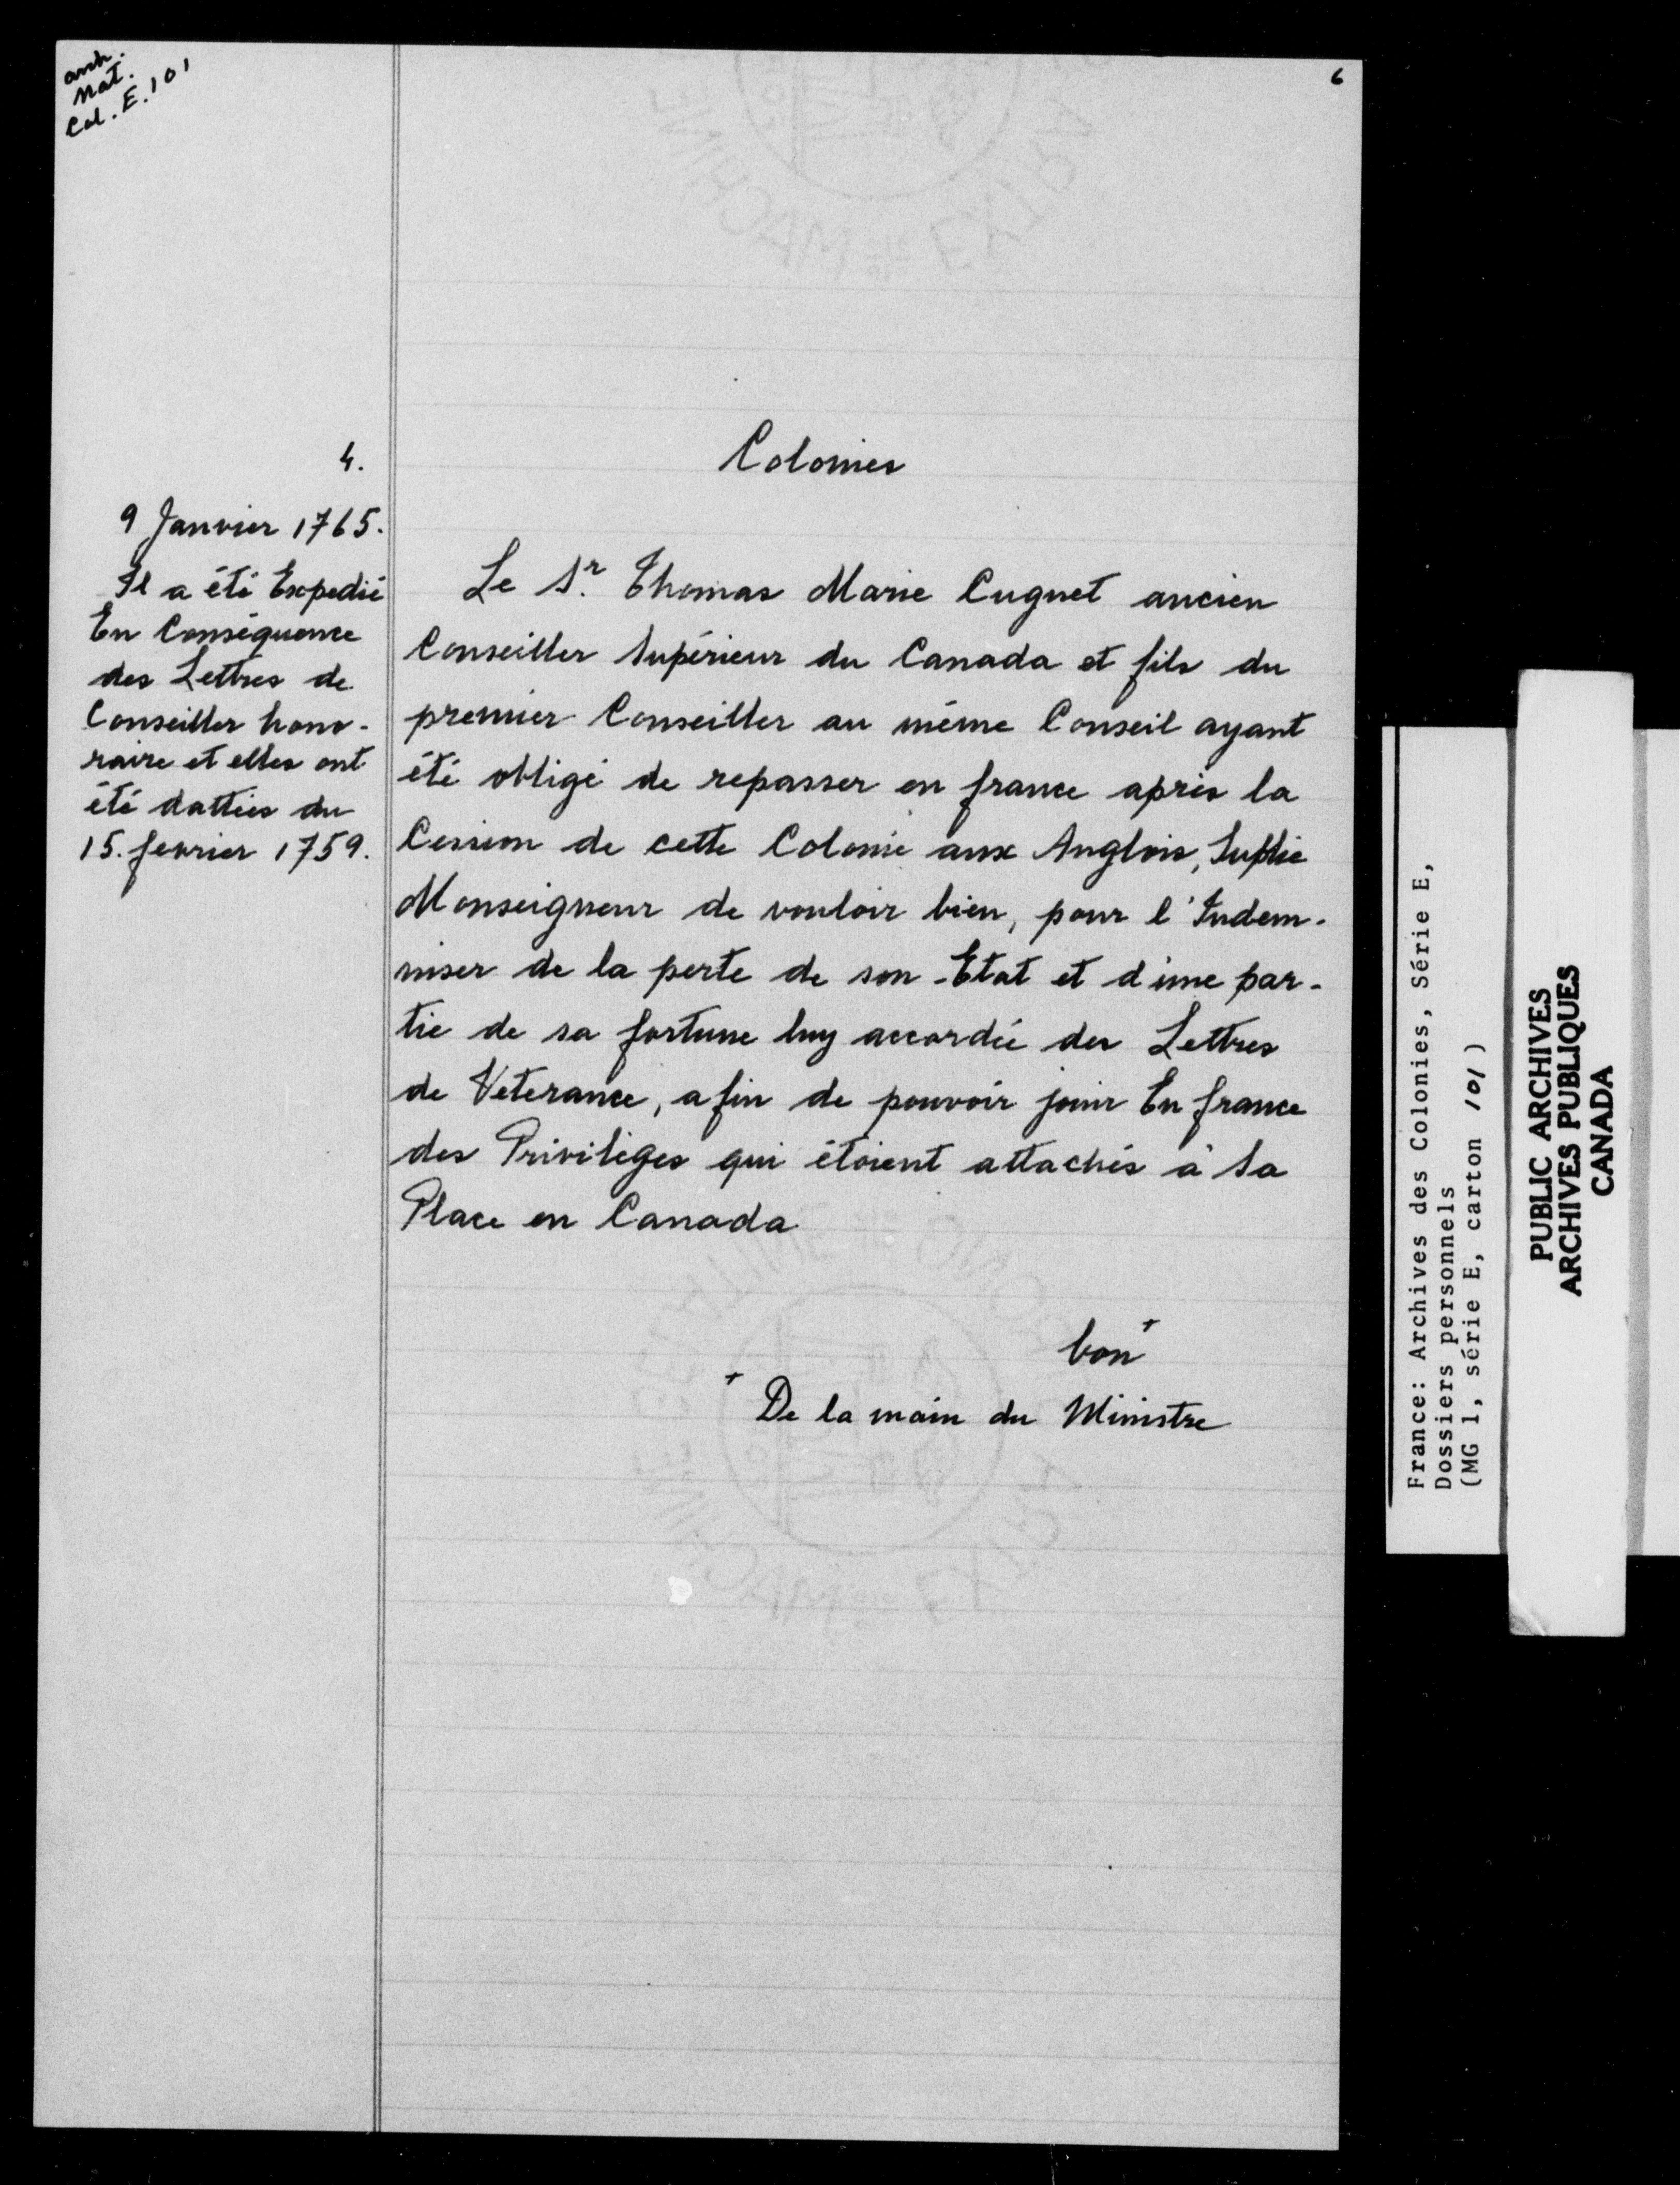 arch.
Nat.
Col. E. 101
6
4.
9 Janvier 1765.
Il a été Expedié
En Conséquence
des Lettres de
Conseiller hono-
raire et elles ont
été dattées du
15. fevrier 1759.
Colonies
Le Sr. Thomas Marie Cugnet ancien
Conseiller Supérieur du Canada et fils du
premier Conseiller au même Conseil ayant
été obligé de repasser en france après la
Cession de cette Colonie aux Anglois, Suplie
Monseigneur de vouloir bien, pour l'Indem-
niser de la perte de son Etat et d'une par-
tie de sa fortune luy accordée des Lettres
de Veterance, afin de pouvoir jouir En france
des Privilèges qui étoient attachés à Sa
Place en Canada
bon +
+ De la main du Ministre
France: Archives des Colonies, Série E,
Dossiers personnels
(MG 1, série E, carton 101)
PUBLIC ARCHIVES
ARCHIVES PUBLIQUES
CANADA